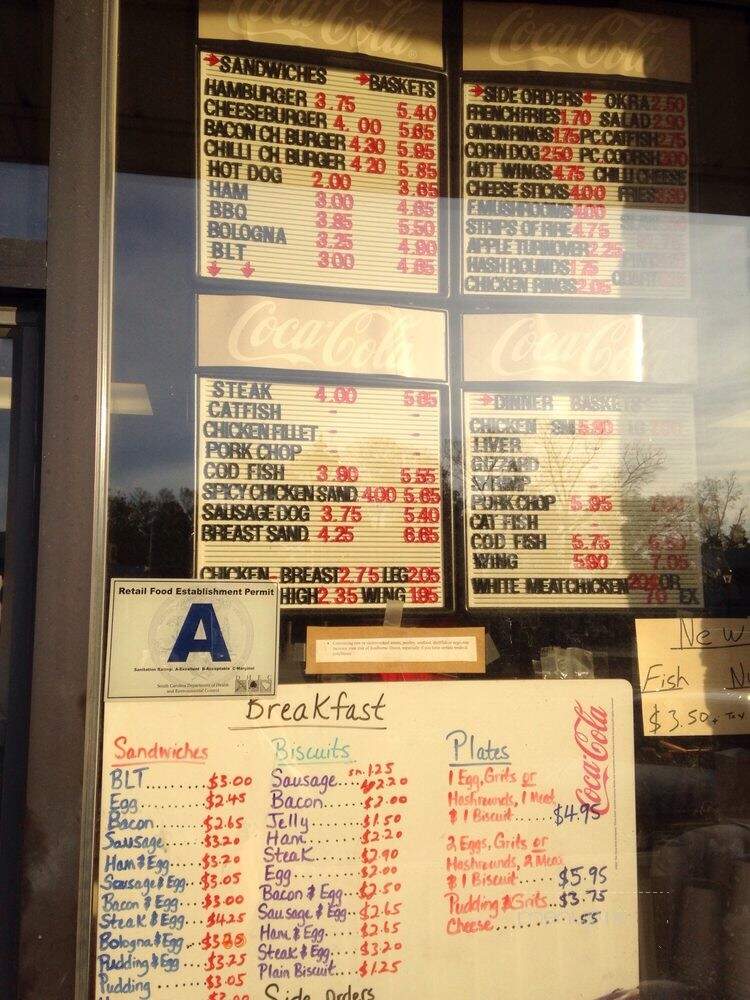 Coca-Cola
→SANDWICHES →BASKETS
HAMBURGER 3.75 5.40
CHEESEBURGER 4.00 5.65
BACON CH. BURGER 4.30 5.95
CHILLI CH. BURGER 4.20 5.85
HOT DOG 2.00 3.65
HAM 3.00 4.65
BBQ 3.85 5.50
BOLOGNA 3.25 4.90
BLT 3.00 4.65
Coca-Cola
→SIDE ORDERS OKRA 2.50
FRENCH FRIES 1.70 SALAD 2.90
ONION RINGS 1.75 PC. CATFISH 2.75
CORN DOG 2.50 PC. CODFISH
HOT WINGS 4.75 CHILLI CHEESE
CHEESE STICKS 4.00 FRIES
F. MUSHROOMS
STRIPS OF FIRE 4.75
APPLE TURNOVER 2.25
HASHROUNDS 1.75
CHICKEN RINGS 2.05
Coca-Cola
STEAK 4.00 5.65
CATFISH
CHICKEN FILLET
PORK CHOP
COD FISH 3.90 5.55
SPICY CHICKEN SAND 4.00 5.65
SAUSAGE DOG 3.75 5.40
BREAST SAND. 4.25 6.65
CHICKEN- BREAST 2.75 LEG 2.05
HIGH 2.35 WING 1.95
Coca-Cola
→DINNER BASKETS
CHICKEN SM 5.90 LG
LIVER
GIZZARD
SHRIMP
PORK CHOP 5.95
CAT FISH
COD FISH 5.75
WING 5.90 7.05
WHITE MEAT CHICKEN OR
EX
Retail Food Establishment Permit
A
Sanitation Ratings: A-Excellent B-Acceptable C-Marginal
South Carolina Department of Health
and Environmental Control
DHEC
New
Fish
$3.50 + Tax
Breakfast
Coca-Cola
Sandwiches
BLT.......$3.00
Egg.......$2.45
Bacon.....$2.65
Sausage...$3.20
Ham & Egg....$3.20
Sausage & Egg..$3.05
Bacon & Egg...$3.00
Steak & Egg...$4.25
Bologna & Egg..
Pudding & Egg...$3.25
Pudding.....$3.05
Biscuits
Sausage... sm. 1.25 2.20
Bacon.....$2.00
Jelly.....$1.50
Ham.....$2.20
Steak.....$2.90
Egg.....$2.00
Bacon & Egg..$2.50
Sausage & Egg..$2.65
Ham & Egg....$2.65
Steak & Egg...$3.20
Plain Biscuit...$1.25
Plates
1 Egg, Grits or
Hashrounds, 1 Meat
& 1 Biscuit.....$4.95
2 Eggs, Grits or
Hashrounds, 2 Meats
& 1 Biscuit.....$5.95
Pudding & Grits..$3.75
Cheese..........55
Side Orders